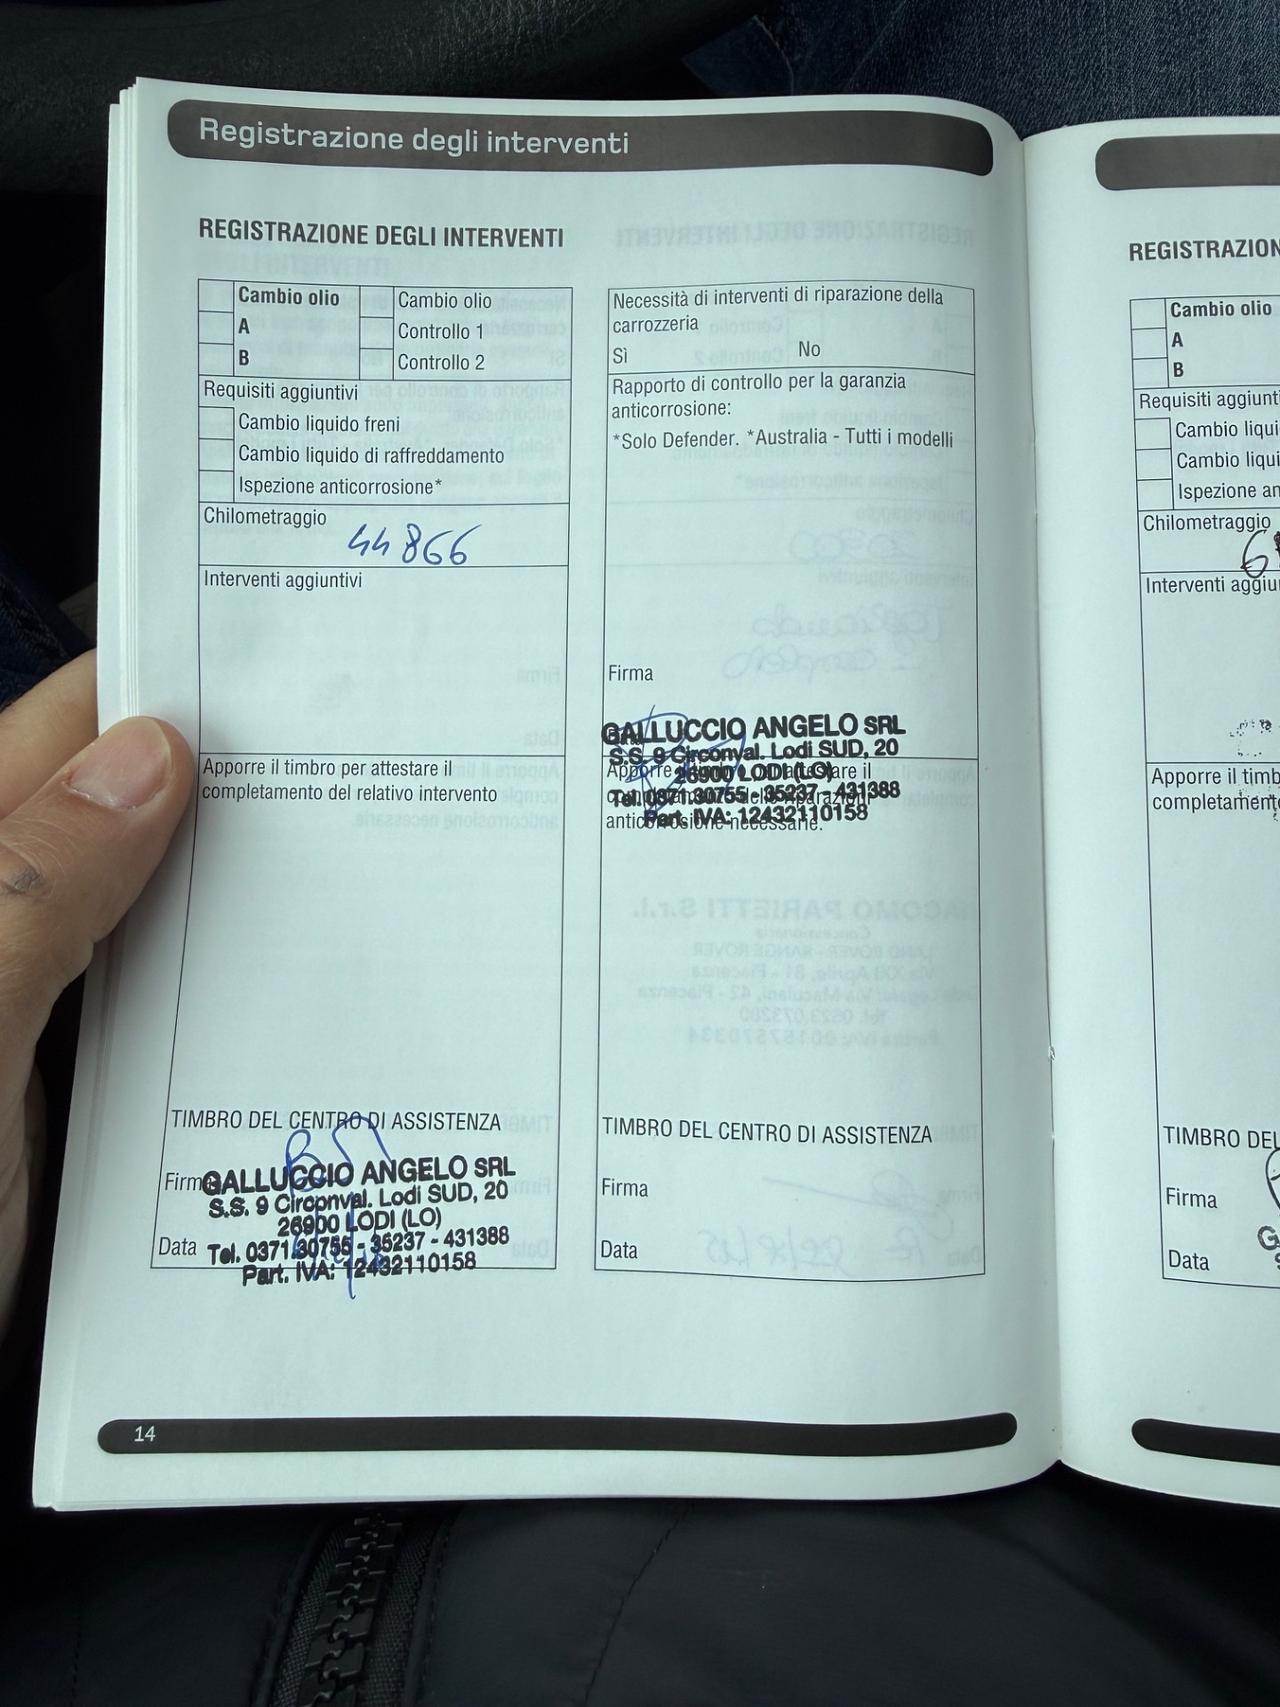 Registrazione degli interventi
REGISTRAZIONE DEGLI INTERVENTI
Cambio olio
A
B
Cambio olio
Controllo 1
Controllo 2
Requisiti aggiuntivi
Cambio liquido freni
Cambio liquido di raffreddamento
Ispezione anticorrosione*
Chilometraggio
44866
Interventi aggiuntivi
Apporre il timbro per attestare il
completamento del relativo intervento
TIMBRO DEL CENTRO DI ASSISTENZA
Firma
GALLUCCIO ANGELO SRL
S.S. 9 Circonval. Lodi SUD, 20
26900 LODI (LO)
Data
Tel. 0371.30755 - 35237 - 431388
Part. IVA: 12432110158
Necessità di interventi di riparazione della
carrozzeria
Sì No
Rapporto di controllo per la garanzia
anticorrosione:
*Solo Defender. *Australia - Tutti i modelli
Firma
GALLUCCIO ANGELO SRL
S.S. 9 Circonval. Lodi SUD, 20
26900 LODI (LO)
Tel. 0371.30755 - 35237 - 431388
Part. IVA: 12432110158
Apporre il
anticorrosione necessarie.
TIMBRO DEL CENTRO DI ASSISTENZA
Firma
Data
14
REGISTRAZION
Cambio olio
A
B
Requisiti aggiunti
Cambio liqui
Cambio liqui
Ispezione an
Chilometraggio
Interventi aggiu
Apporre il timb
completament
TIMBRO DEL
Firma
Data